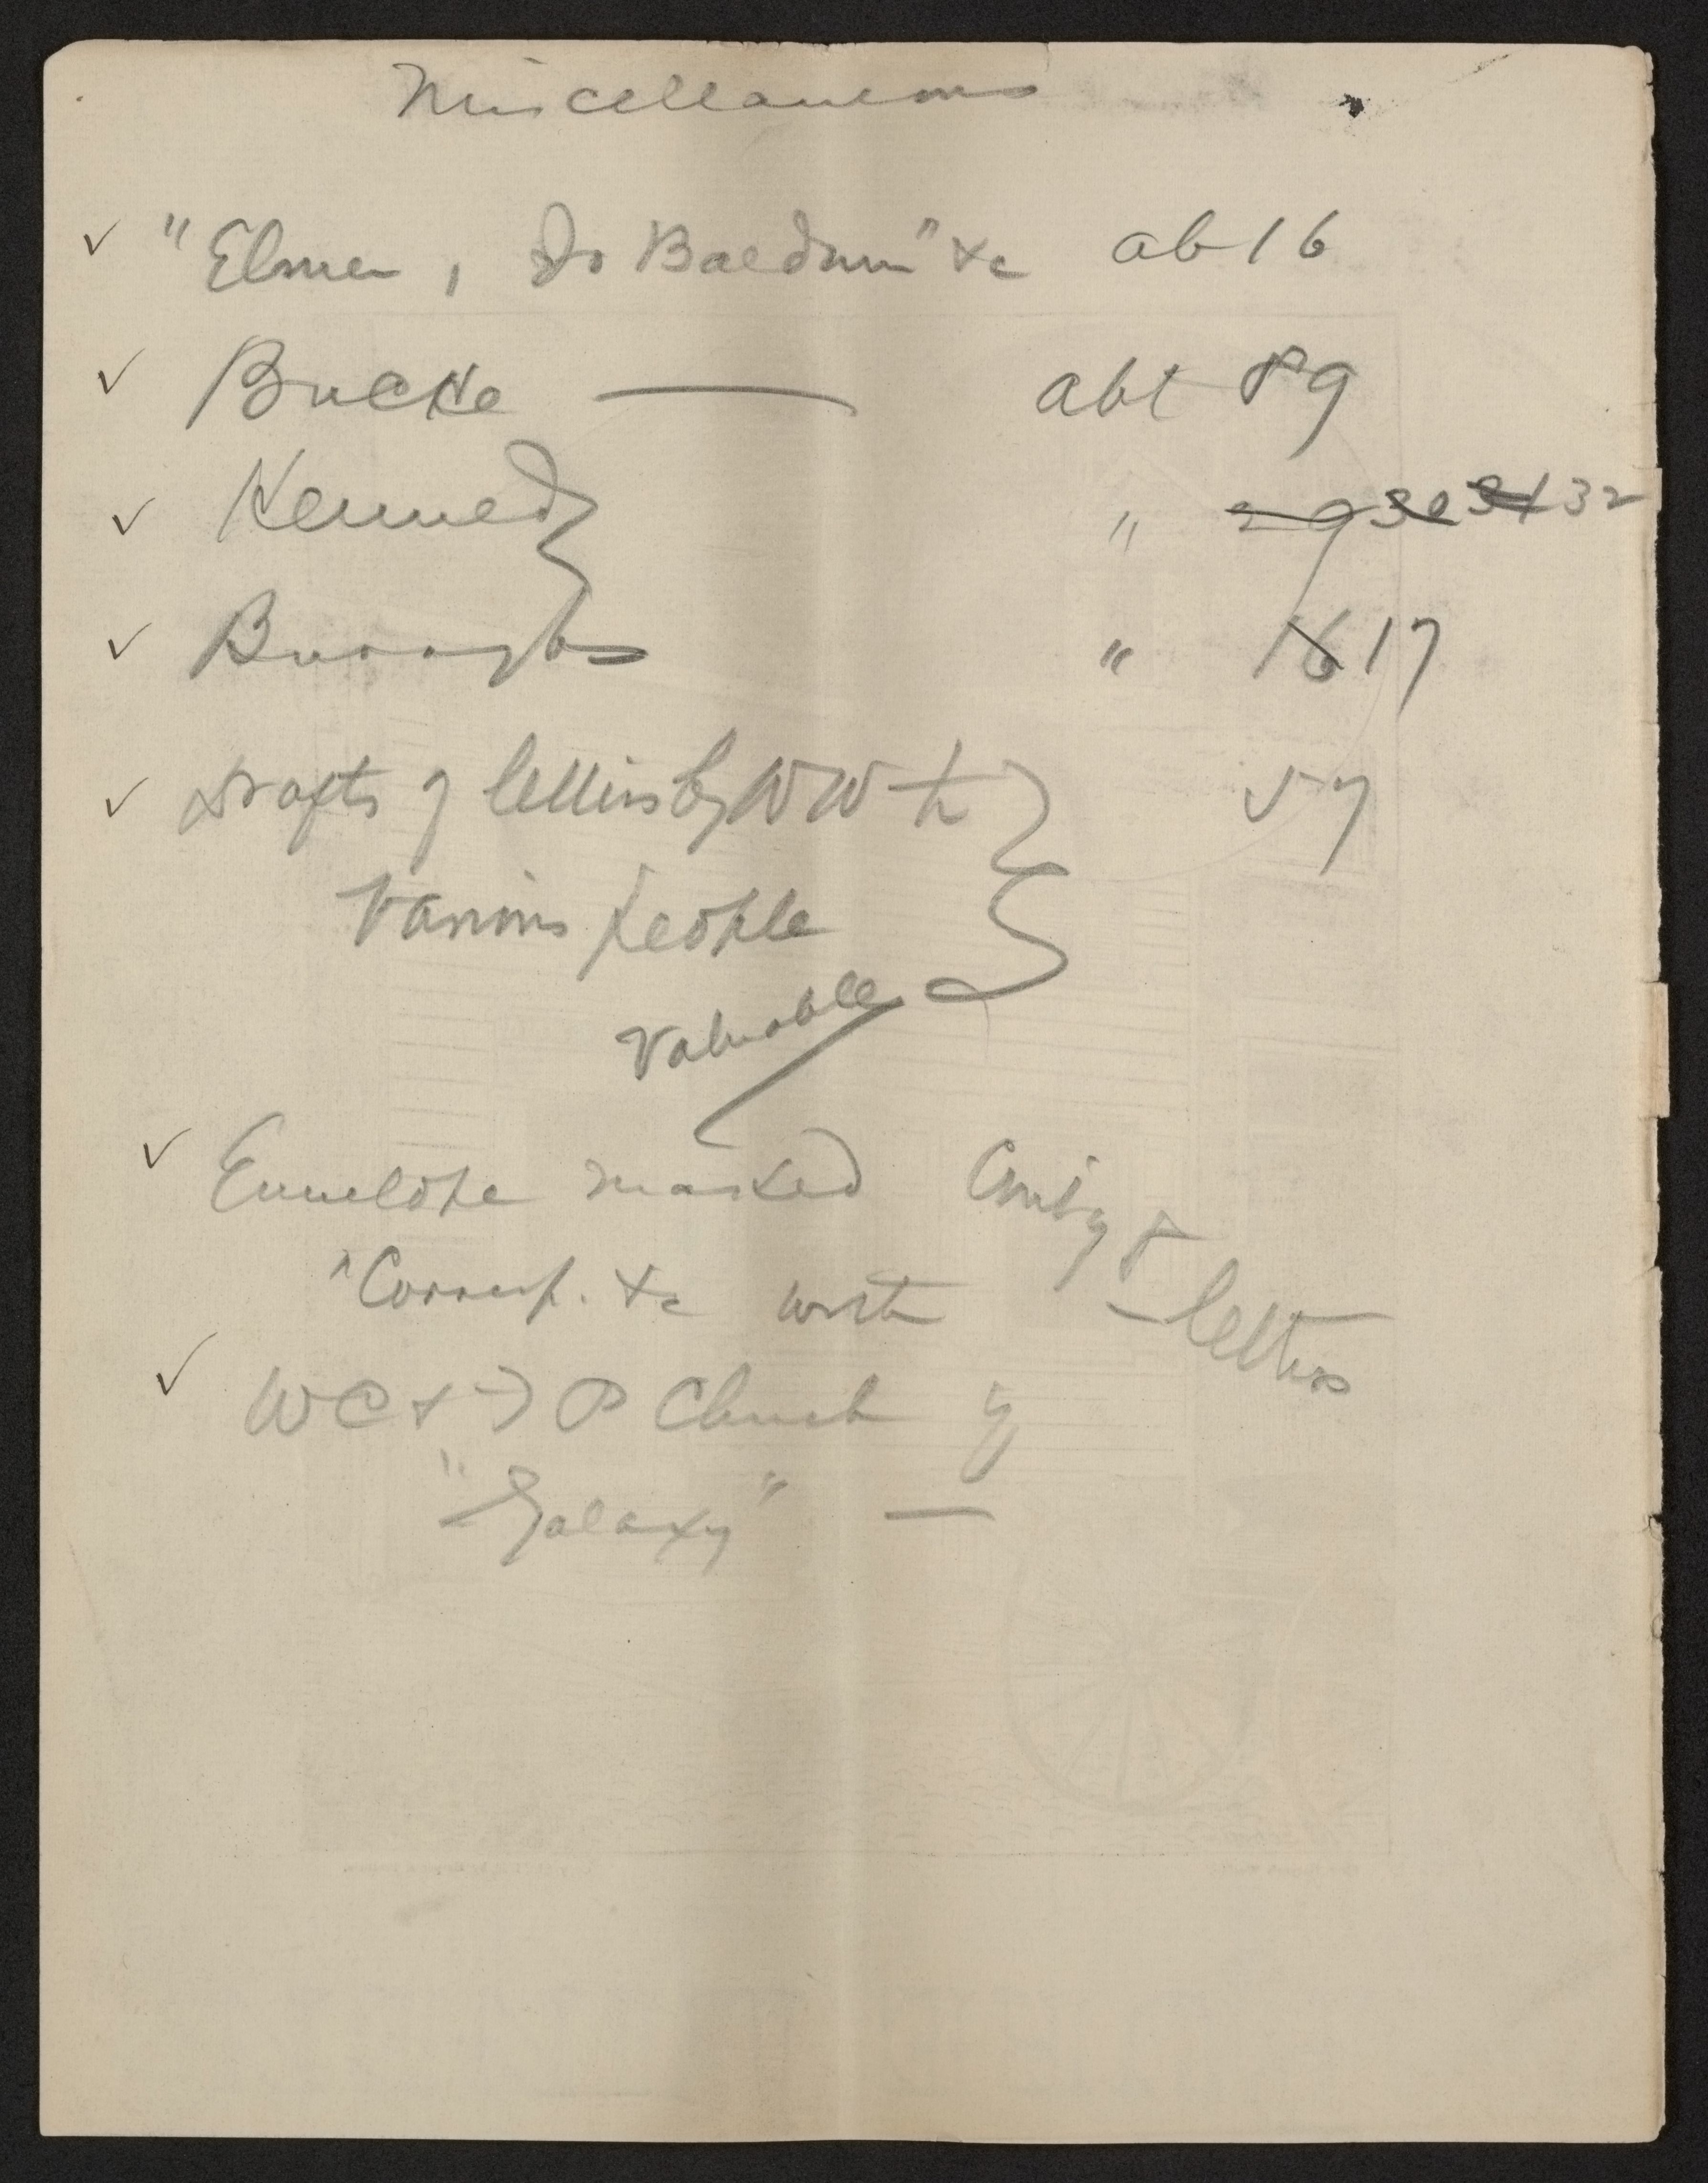 Miscellaneous
✓ "Elmer, Dr Baldwin" &c ab 16
✓ Bucke — abt 89
✓ Kennedy " 29 30 31 32
✓ Burroughs " 16 17
✓ Drafts of letters by WW to 57
various people
Valuable
✓ Envelope marked Contg 8
"Corresp. &c with letters
✓ WC & F P Church of
"Galaxy" —